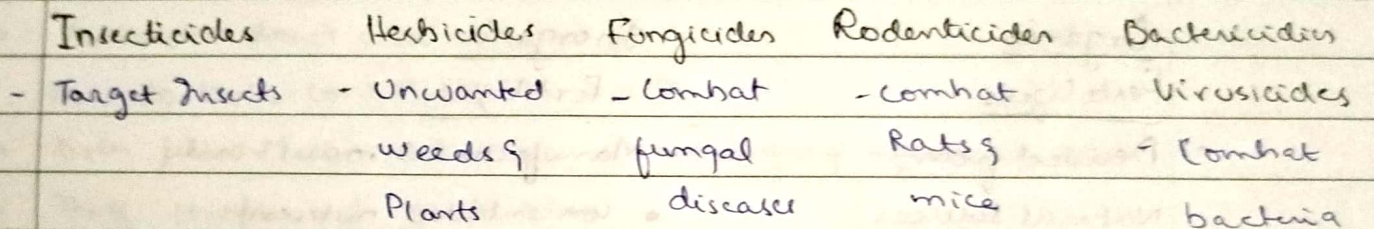 Insecticides Herbicides Fungicides Rodenticides Bactericidies
- Target Insects - Unwanted - Combat - combat Virusicides
weeds & fungal Rats & - Combat
Plants diseases mice bacteria